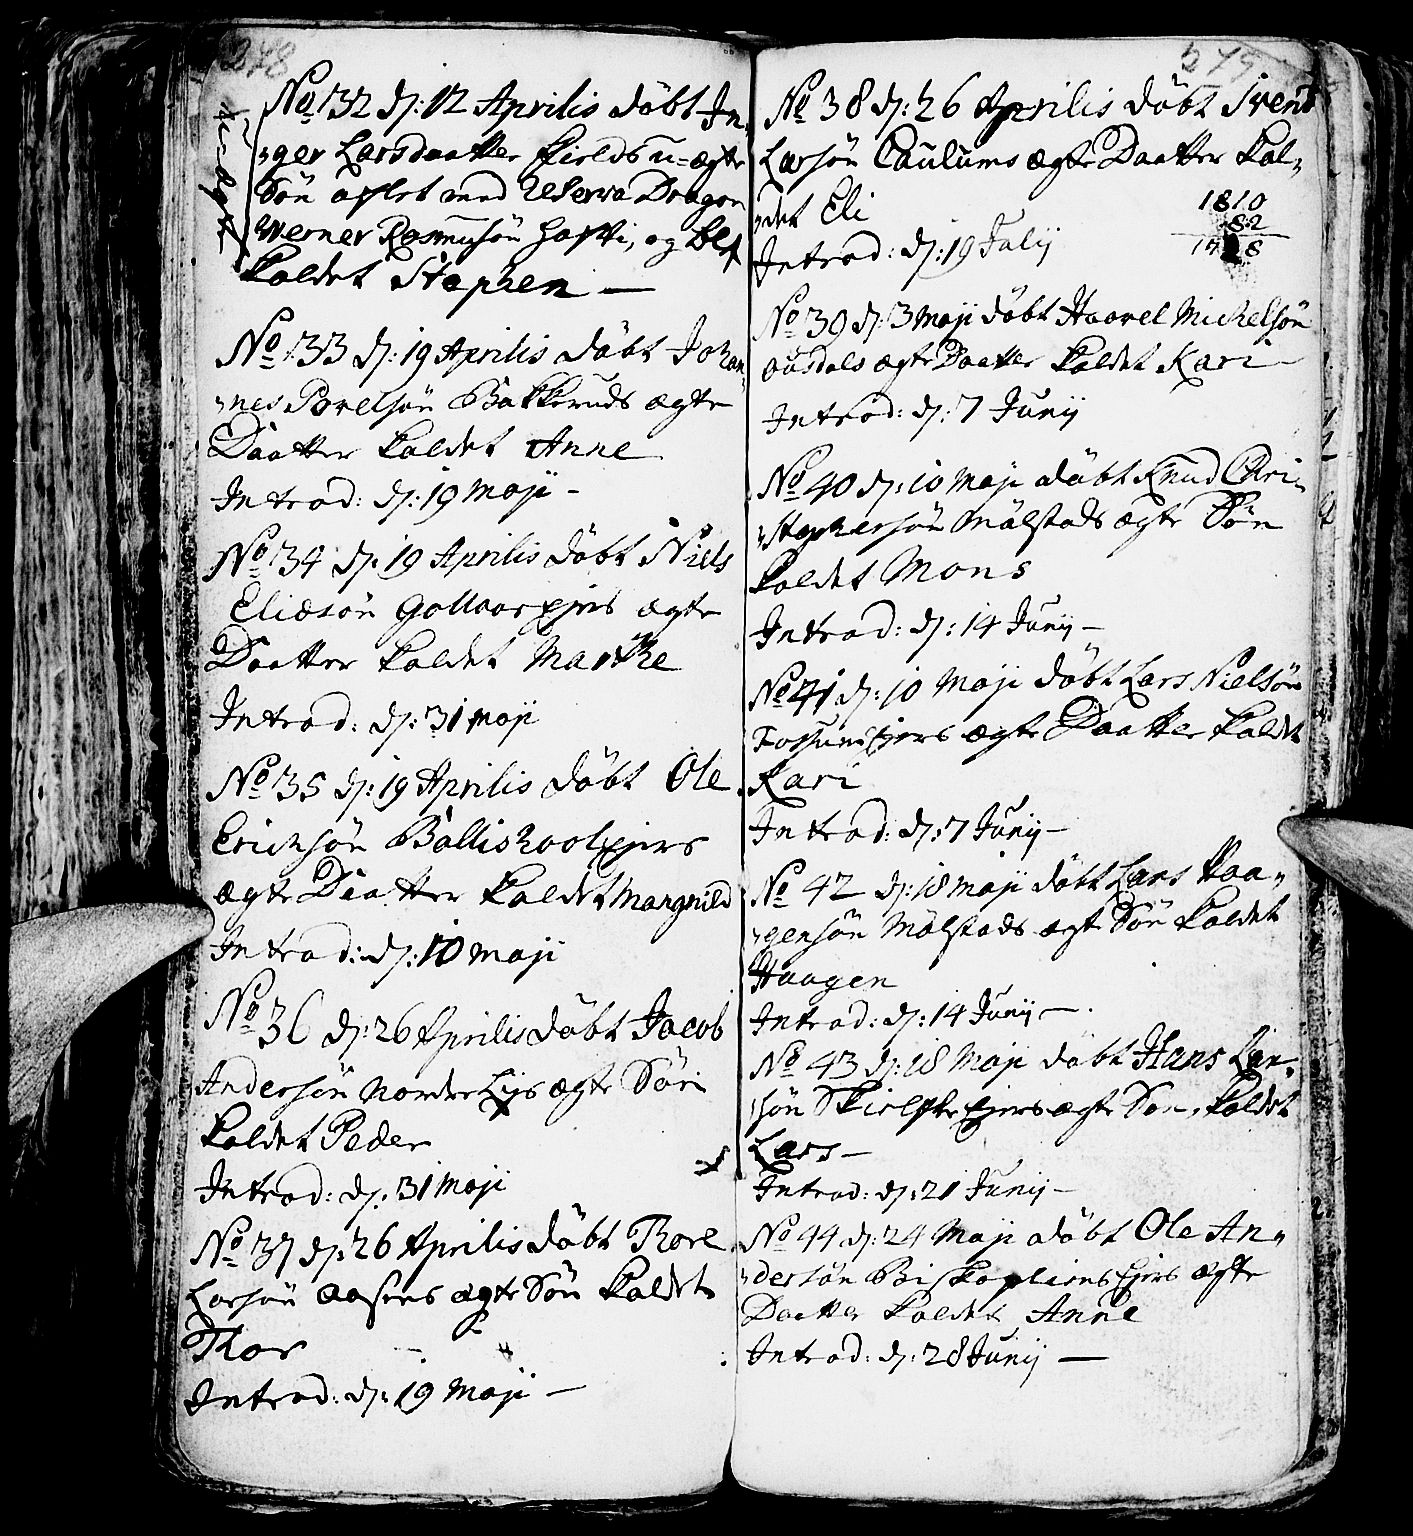 278
No 32 d: 12 Aprilis döbt In,
,ger Larsdaatter Fields u=ægte
Sön aflet med Dragon
Werner Rasmusön Hafti, og blef
kaldet Stephen —
No 33 d: 19 Aprilis döbt Johan,
,nes Povelsön Bakkeruds ægte
Daatter kaldet Anne
Introd: d: 19 Maji –
No 34 d: 19 Aprilis döbt Niels
Eliæsön Gollaarejers ægte
Daatter kaldet Marthe
Introd: d: 31 Maji
No 35 d: 19 Aprilis döbt Ole
Ericksön Ballishoolejers
ægte Daatter kaldet Margnild
Introd: d: 10 Maji
No 36 d: 26 Aprilis döbt Jacob
Andersön Nordre Lijs ægte Sön
kaldet Peder
Introd: d: 31 Maji
No 37 d: 26 Aprilis döbt Thore
Larsön Aasens ægte Sön kaldet
Thor
Introd: d: 19 Maji —
279
No 38 d: 26 Aprilis döbt Svend
Larsön Paulums ægte Daatter kal,
,det Eli
1810
82
1728
Introd: d: 19 Julij
No 39 d: 3 Maji döbt Haavel Michelsön
Ousdals ægte Daatter kaldet Kari
Introd: d: 7 Junij
No 40 d: 10 Maji döbt Knud Chri,
,stophersön Mälstads ægte Sön
kaldet Mons
Introd: d: 14 Junij —
No 41 d: 10 Maji döbt Lars Nielsön
Fossumejers ægte Daatter kaldet
Kari
Introd: d: 7 Junij —
No 42 d: 18 Maji döbt Lars Haa,
,gensön Mälstads ægte Sön kaldet
Haagen
Introd: d: 14 Junij —
No 43 d: 18 Maji döbt Hans Lar,
,sön ægte Sön, kaldet
Lars —
Introd: d: 21 Junij —
No 44 d: 24 Maji döbt Ole An,
,dersön Biskopliens Ejers ægte
Daatter kaldet Anne
Introd: d: 28 Junij —